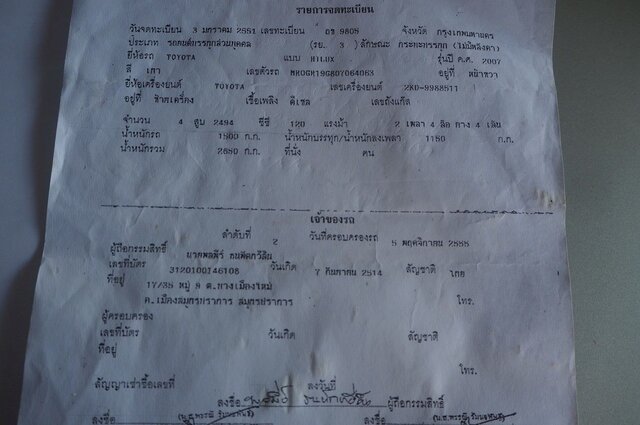 รายการจดทะเบียน
วันจดทะเบียน 3 มกราคม 2551 เลขทะเบียน 9805 จังหวัด กรุงเทพมหานคร
ประเภท รถยนต์บรรทุกส่วนบุคคล (รย. 3 ) ลักษณะ กระบะบรรทุก (ไม่มีหลังคา)
ยี่ห้อรถ TOYOTA แบบ HILUX รุ่นปี ค.ศ. 2007
สี เทา เลขตัวรถ MR0GR19G807064063 อยู่ที่ หน้าขวา
ยี่ห้อเครื่องยนต์ TOYOTA เลขเครื่องยนต์ 2KD-9988511
อยู่ที่ ซ้ายเครื่อง เชื้อเพลิง ดีเซล เลขถังแก๊ส
จำนวน 4 สูบ 2494 ซีซี 120 แรงม้า 2 เพลา 4 ล้อ ยาง 4 เส้น
น้ำหนักรถ ก.ก. น้ำหนักบรรทุก/น้ำหนักลงเพลา ก.ก.
น้ำหนักรวม ก.ก. ที่นั่ง คน
เจ้าของรถ
ลำดับที่ 2 วันที่ครอบครองรถ 5 พฤศจิกายน 2555
ผู้ถือกรรมสิทธิ์
เลขที่บัตร 3120100146106 วันเกิด 7 กันยายน 2514 สัญชาติ ไทย
ที่อยู่ 17/35 หมู่ 8 ต.บางเมืองใหม่
อ.เมืองสมุทรปราการ สมุทรปราการ โทร.
ผู้ครอบครอง
เลขที่บัตร วันเกิด สัญชาติ
ที่อยู่
โทร.
สัญญาเช่าซื้อเลขที่ ลงวันที่
ลงชื่อ ผู้ถือกรรมสิทธิ์
ลงชื่อ ลงชื่อ